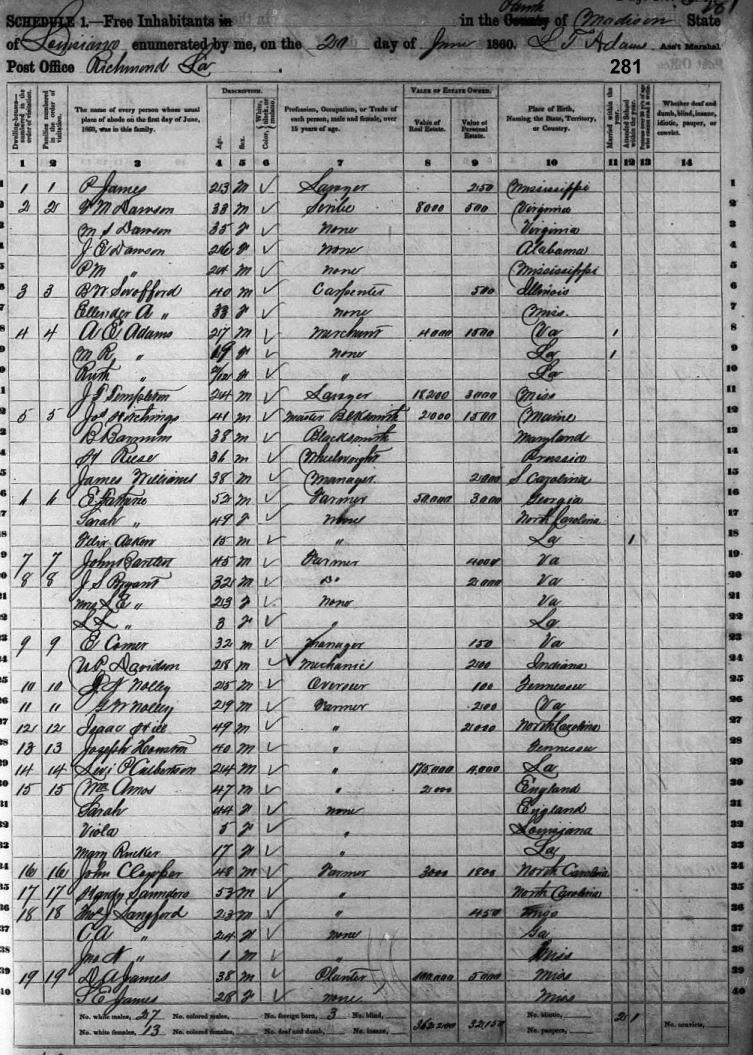 281
SCHEDULE 1.—Free Inhabitants in in the County Parish of Madison State
of Louisiana enumerated by me, on the 20 day of June 1860. S T Adams Ass't Marshal.
Post Office Richmond La. 281
Dwelling-houses— numbered in the order of visitation.
Families numbered in the order of visitation.
The name of every person whose usual place of abode on the first day of June, 1860, was in this family.
DESCRIPTION.
Age.
Sex.
Color, White, black, or mulatto.
Profession, Occupation, or Trade of each person, male and female, over 15 years of age.
VALUE OF ESTATE OWNED.
Value of Real Estate.
Value of Personal Estate.
Place of Birth, Naming the State, Territory, or Country.
Married within the year.
Attended School within the year.
Whether deaf and dumb, blind, insane, idiotic, pauper, or convict.
1 2 3 4 5 6 7 8 9 10 11 12 13 14
1 1 1 P James 23 m ✓ Lawyer 250 Mississippi 1
2 2 2 Dawson 38 m ✓ Scribe 8000 500 Virginia 2
3 M S Dawson 35 f ✓ None Virginia 3
4 J E Dawson 26 f ✓ None Alabama 4
5 P M " 24 m ✓ none Mississippi 5
6 3 3 B W Swofford 40 m ✓ Carpenter 500 Illinois 6
7 Ellender A " 33 f ✓ none Miss. 7
8 4 4 A E Adams 27 m ✓ Merchant 4000 1500 Va 1 8
9 M R " 19 f ✓ none La 1 9
10 Ruth " /12 f ✓ " La 10
11 J L Templeton 24 m ✓ Lawyer 18200 3000 Miss 11
12 5 5 Jos Hitchings 41 m ✓ Master Blksmith 2000 1500 Maine 12
13 B Bannum 38 m ✓ Blacksmith Maryland 13
14 Riese 36 m ✓ Wheelwright Prussia 14
15 James Williams 38 m ✓ Manager 2000 S Carolina 15
16 6 6 E 52 m ✓ Farmer 50000 3000 Georgia 16
17 Sarah " 49 f ✓ none North Carolina 17
18 Felix Askew 15 m ✓ " La 1 18
19 7 7 John Bartlett 45 m ✓ Farmer 4000 Va 19
20 8 8 J S Bryant 32 m ✓ Do 2000 Va 20
21 Mrs L E " 23 f ✓ None Va 21
22 L L " 3 f ✓ " La 22
23 9 9 E Comer 32 m ✓ Manager 150 Va 23
24 Davidson 28 m ✓ Mechanic 200 Indiana 24
25 10 10 Nolley 25 m ✓ Overseer 100 Tennessee 25
26 11 11 G W Nolley 29 m ✓ Farmer 200 Va 26
27 12 12 Isaac Hill 49 m ✓ " 2000 North Carolina 27
28 13 13 Joseph Houston 40 m ✓ " Tennessee 28
29 14 14 Levi P Culbertson 24 m ✓ " 175,000 La 29
30 15 15 Wm Amos 47 m ✓ " 2000 England 30
31 Sarah 44 f ✓ none England 31
32 Viola 5 f ✓ " Louisiana 32
33 Mary Rucker 17 f ✓ " La 33
34 16 16 John Clapper 48 m ✓ Farmer 3000 1800 North Carolina 34
35 17 17 Hardy Saunders 53 m ✓ " North Carolina 35
36 18 18 Thos J Langford 23 m ✓ " 450 36
37 C A " 24 f ✓ none Ga 37
38 Jno " 1 m ✓ " Miss 38
39 19 19 D A James 38 m ✓ Planter 100,000 5000 Miss 39
40 S E James 28 f ✓ none Miss 40
No. white males, 27 No. colored males, No. foreign born, 3 No. blind, 362200 32150 No. idiotic, 2 1 No. convicts,
No. white females, 13 No. colored females, No. deaf and dumb, No. insane, No. paupers,